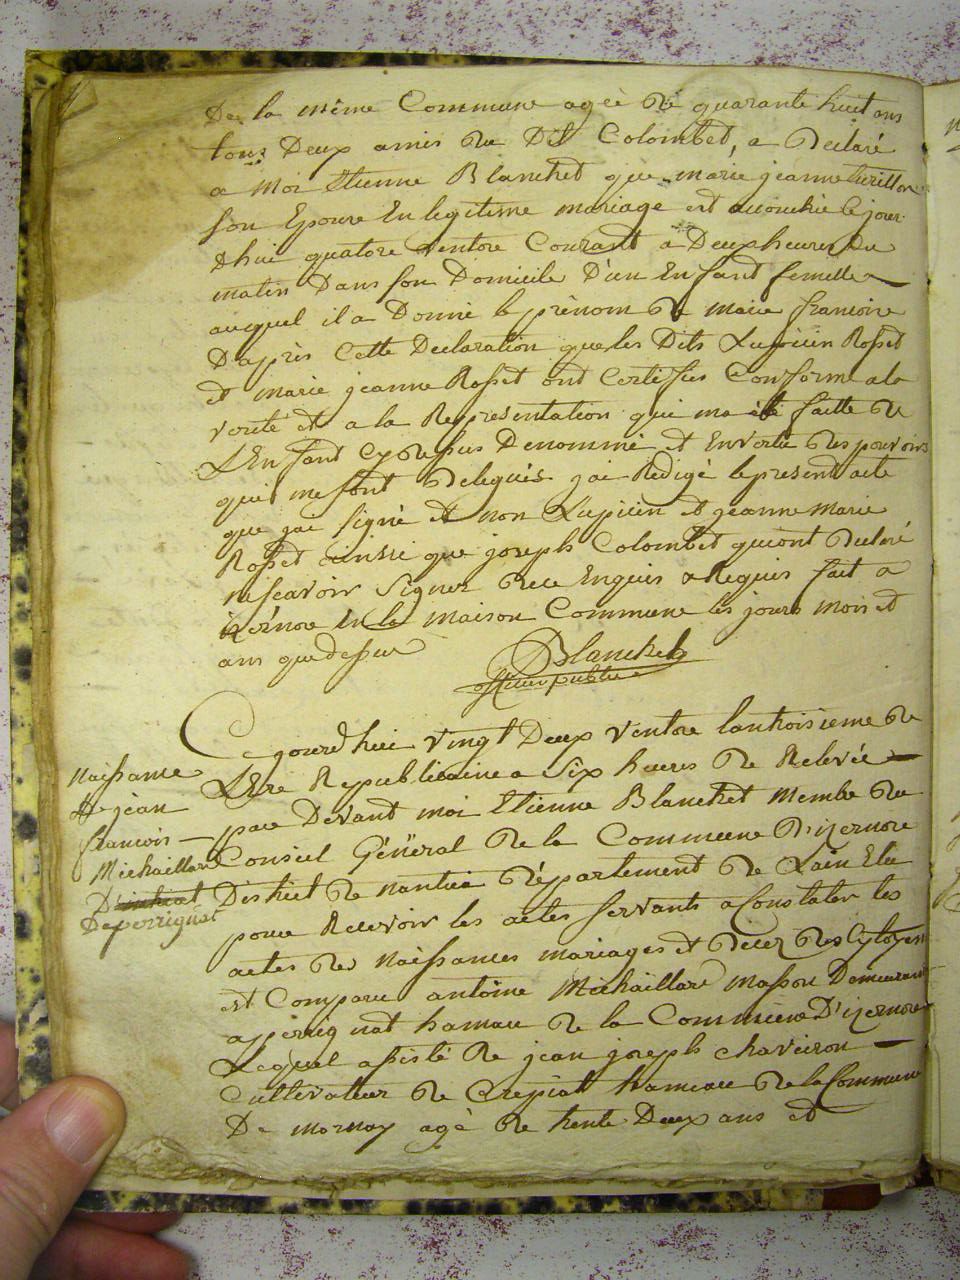 De la même Commune agée de quarante huit ans
tous Deux amis du Dit Colombet, a Declaré
a Moi Etienne Blanchet que marie jeanne
son Epouse En legitime mariage est accouchée cejour
dhui quatore ventose Courant a Deux heures du
matin Dans son Domicile D'un Enfant femelle
auquel il a Donné le prénom de marie francoise
Daprès Cette Declaration que les Dits Lupicin Rosset
et marie jeanne Rosset ont Certifiés Conforme a la
verité et a la Representation qui ma été faitte de
LEnfant cydessus Denommé et Envertu des pouvoirs
qui mesont Delegués jai Redigé lepresent acte
que jai signé et non Lupicin et jeanne marie
Rosset ainssi que joseph Colombet quiont declaré
nescavoir signer dece Enquis a Requis fait a
izernore En la maison Commune les jours mois et
ans quedessus
Blanchet
officier public
Cejourdhui vingt Deux ventose lantroisieme de
LEre Republicaine a Six heures de Relevée
par Devant moi Etienne Blanchet Membe du
Conseil Général de la Commune D'izernore
District de nantua département de Lain Elu
pour Recevoir les actes servants a Constater les
actes des naissances mariages et decez des Cytoyens
est Comparu antoine Michaillard masson Demeurant
a perrignat hamau de la Commune D'izernore
Lequel assisté de jean joseph chaveiron
Cultivateur de Crepiat hameau de la Commune
De mornay agé de trente Deux ans et
naissance
de jean
francois
Michaillard
Deperrignat